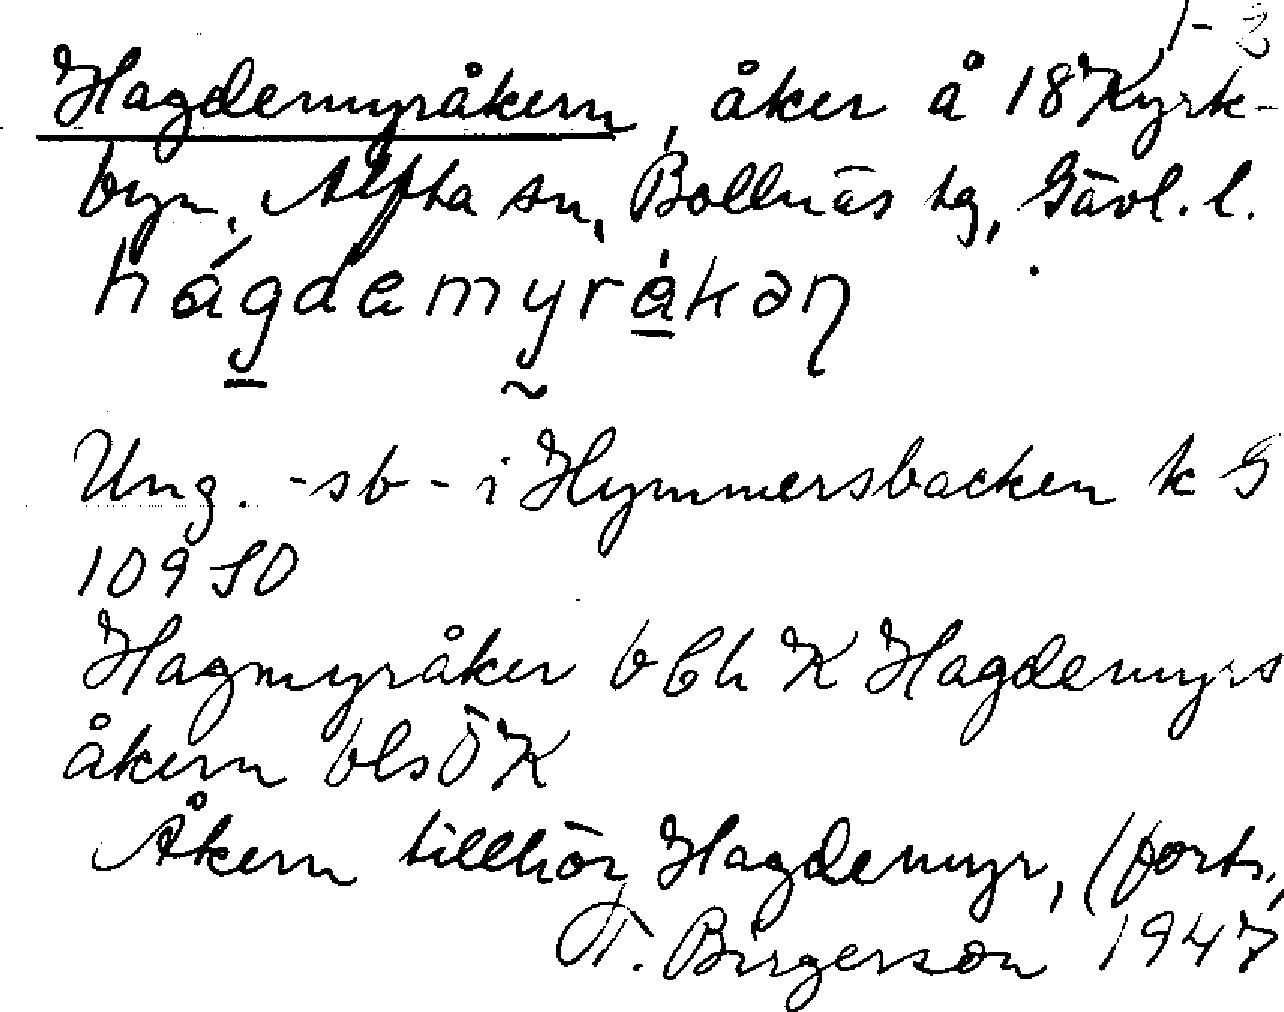 1-2
Hagdemyråkern, åker å 18 Kyrk-
byn, Alfta sn, Bollnäs tg, Gävl. l.
hágdamyråkəɳ
Ung. -sb- i Hymmersbacken k G
109 SO
Hagmyråker b Ch K Hagdemyrs
åkern bls Ö K
Åkern tillhör Hagdemyr, (forts.,
T. Birgerson 1947